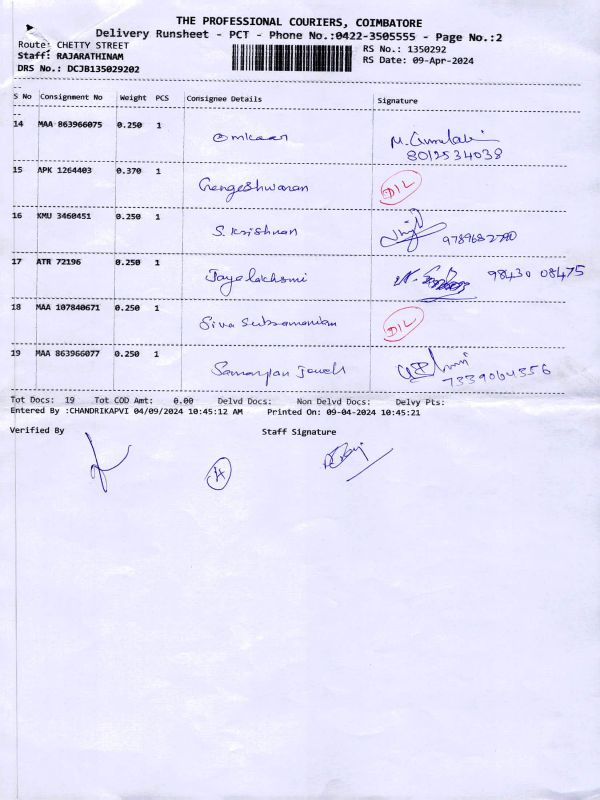 THE PROFESSIONAL COURIERS, COIMBATORE
Delivery Runsheet - PCT - Phone No.:0422-3505555 - Page No.:2
Route: CHETTY STREET RS No.: 1350292
Staff: RAJARATHINAM RS Date: 09-Apr-2024
DRS No.: DCJB135029202
S No Consignment No Weight PCS Consignee Details Signature
14 MAA 863966075 0.250 1 Omkaar
8012534038
15 APK 1264403 0.370 1 Gengeshwaran D/L
16 KMU 3460451 0.250 1 S. Krishnan
17 ATR 72196 0.250 1 Jayalakshmi 98430 08475
18 MAA 107840671 0.250 1 Siva Subramanian D/L
19 MAA 863966077 0.250 1 Samanpan Jewels
7339064356
Tot Docs: 19 Tot COD Amt: 0.00 Delvd Docs: Non Delvd Docs: Delvy Pts:
Entered By :CHANDRIKAPVI 04/09/2024 10:45:12 AM Printed On: 09-04-2024 10:45:21
Verified By Staff Signature